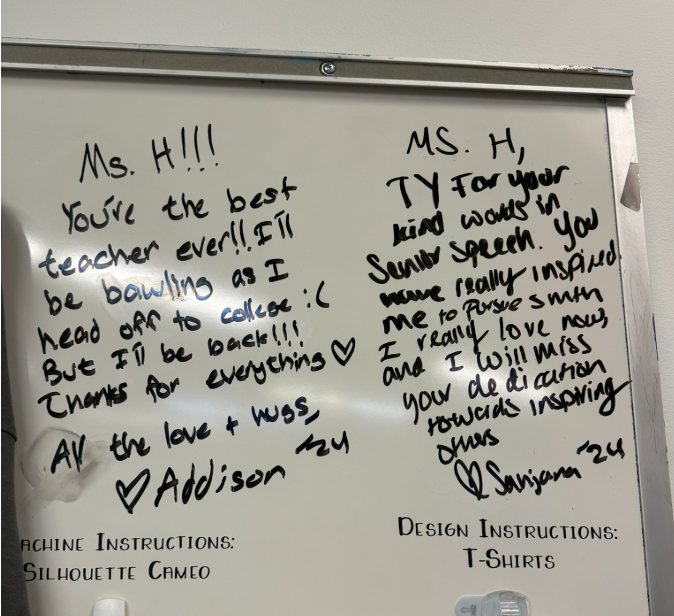 Ms. H!!!
You're the best
teacher ever!! I'll
be bawling as I
head off to college :(
But I'll be back!!!
Thanks for everything ♡
All the love + hugs,
♡ Addison '24
MS. H,
TY For your
kind words in
Senior speech. You
have really inspired
me to pursue smth
I really love now,
and I will miss
your dedication
towards inspiring
others
♡ Sanjana '24
ACHINE INSTRUCTIONS:
SILHOUETTE CAMEO
DESIGN INSTRUCTIONS:
T-SHIRTS